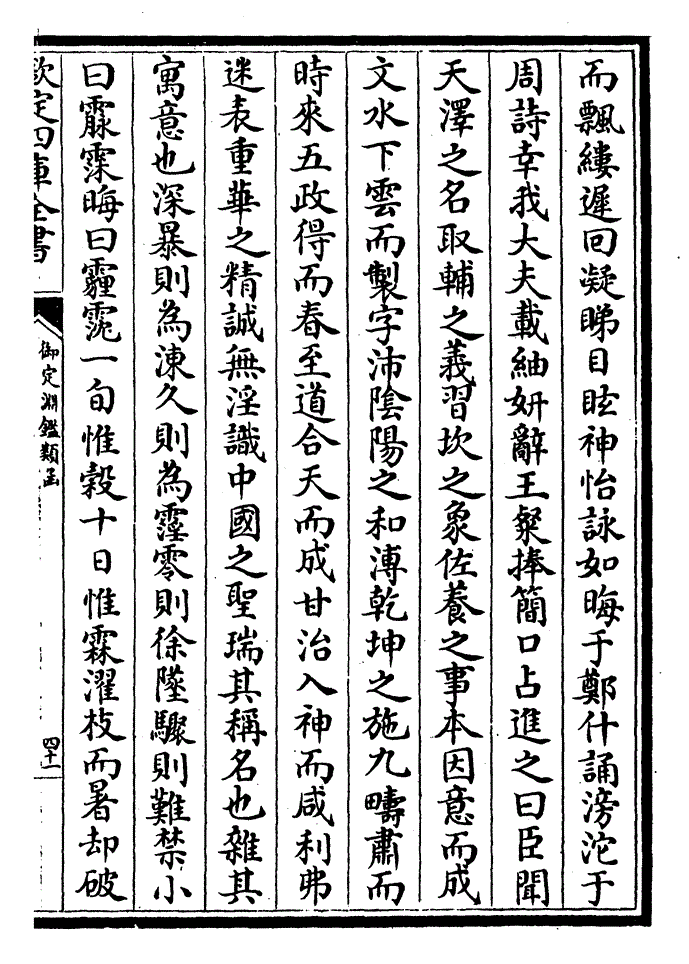 而飄縷遲回凝睇目眩神怡詠如晦于鄭什誦滂沱于
周詩幸我大夫載紬妍辭王粲捧簡口占進之曰臣聞
天澤之名取輔之義習坎之象佐養之事本因意而成
文水下雲而製字沛陰陽之和溥乾坤之施九疇肅而
時來五政得而春至道合天而成甘治入神而咸利弗
迷表重華之精誠無淫識中國之聖瑞其稱名也雜其
寓意也深暴則為涷久則為霪零則徐墜驟則難禁小
曰霢霂晦曰霾霓一旬惟穀十日惟霖濯枝而暑却破
欽定四庫全書
御定淵鑑類函
四十一